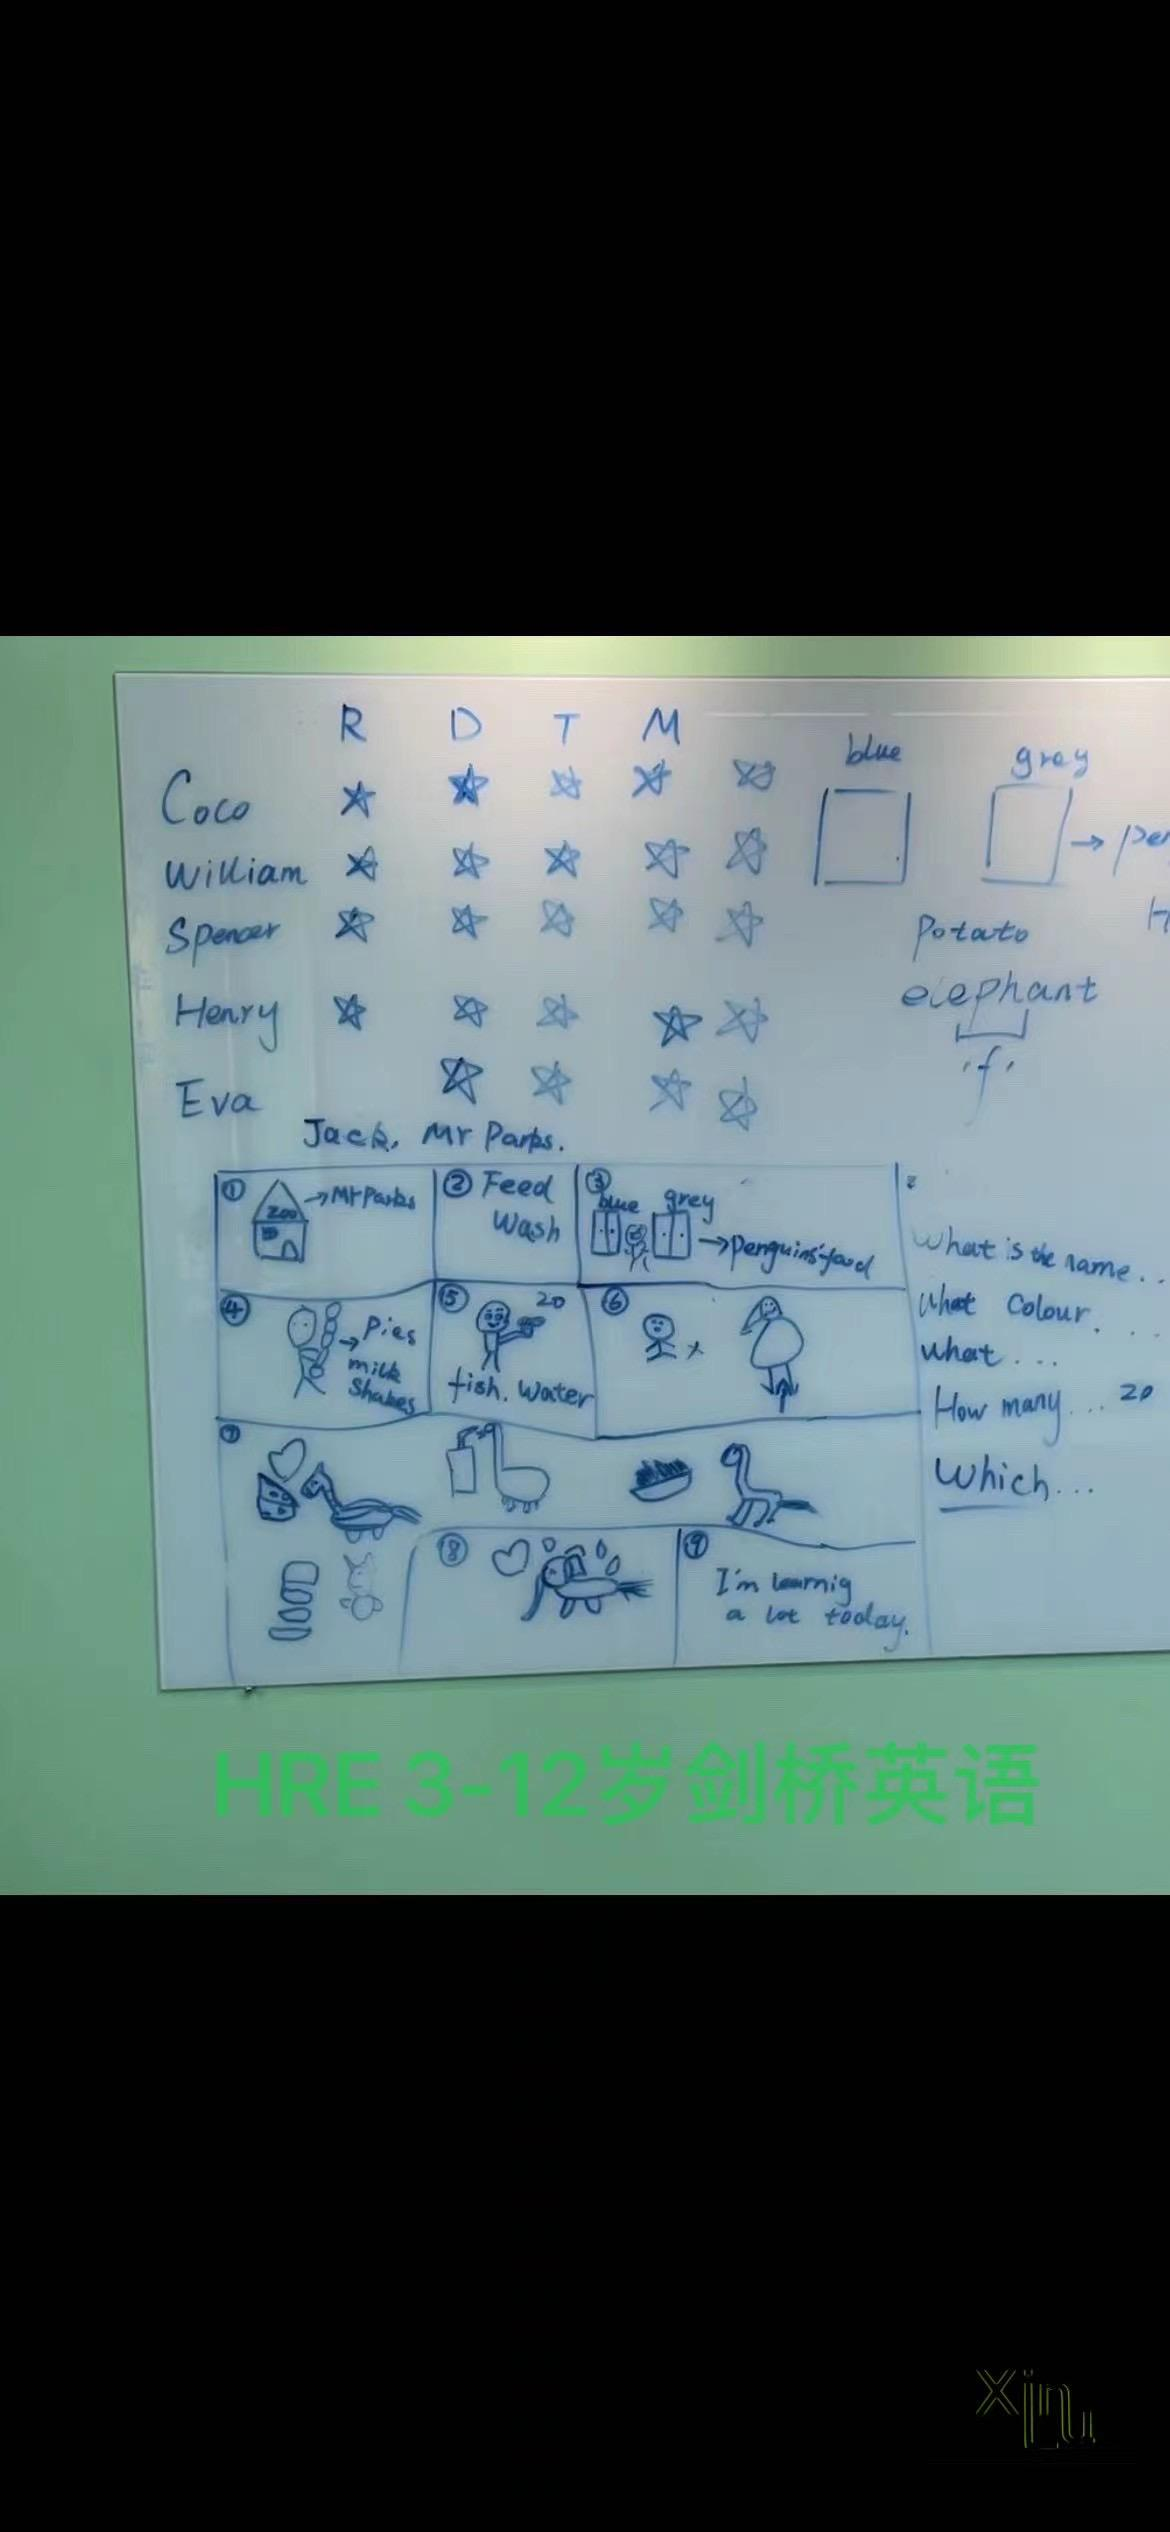 R D T M
Coco
William
Spencer
Henry
Eva
blue grey
potato
elephant
'f'
Jack. Mr Parks.
① zoo → Mr Parks
② Feed
Wash
③ blue grey
→ penguins' food
④ → Pies
milk
Shakes
⑤ 20
fish. water
⑥ ×
⑦
⑧
⑨ I'm learnig
a lot today.
What is the name...
What Colour. ...
what ...
How many ... 20
Which ...
HRE 3-12岁剑桥英语